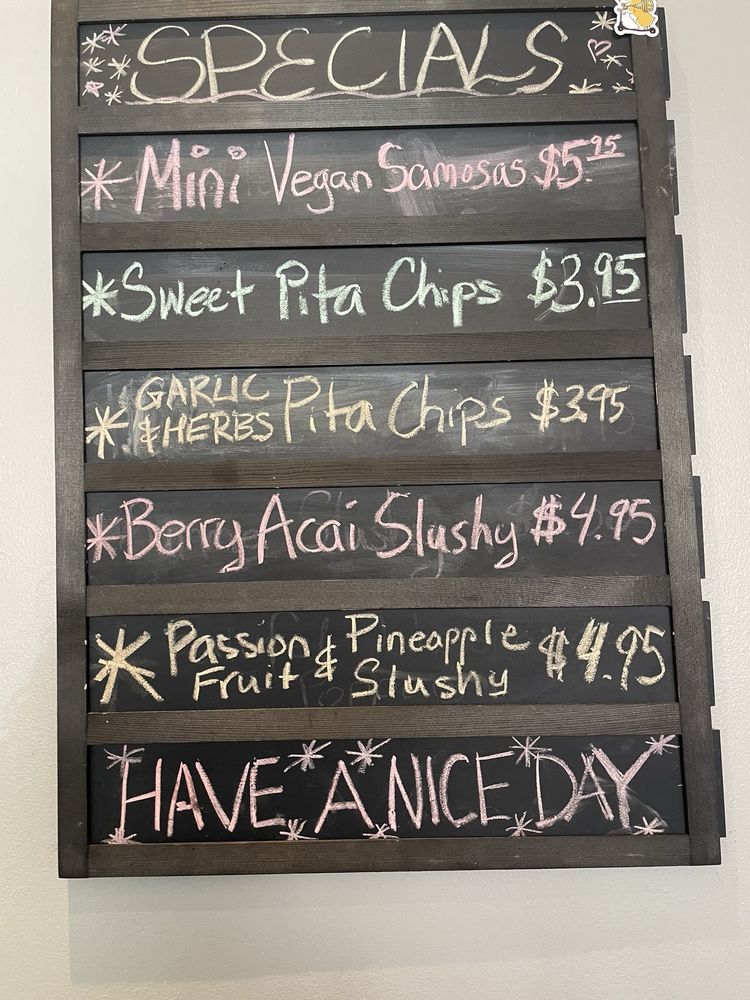 SPECIALS
* Mini Vegan Samosas $5.95
* Sweet Pita Chips $3.95
* GARLIC & HERBS Pita Chips $3.95
* Berry Acai Slushy $4.95
* Passion Fruit & Pineapple Slushy $4.95
HAVE A NICE DAY